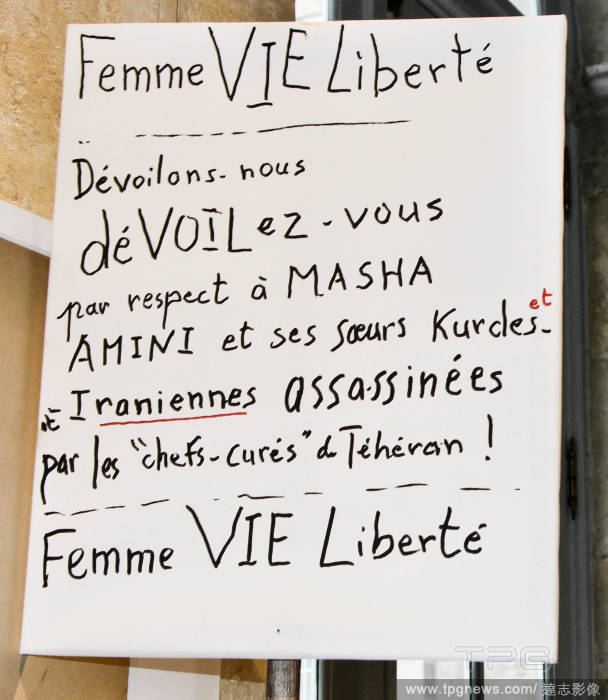 Femme VIE Liberté
Dévoilons-nous
déVOILez-vous
par respect à MASHA
AMINI et ses sœurs Kurdes- et
et Iraniennes assassinées
par les "chefs-curés" de Téhéran !
Femme VIE Liberté
TPG
www.tpgnews.com/達志影像